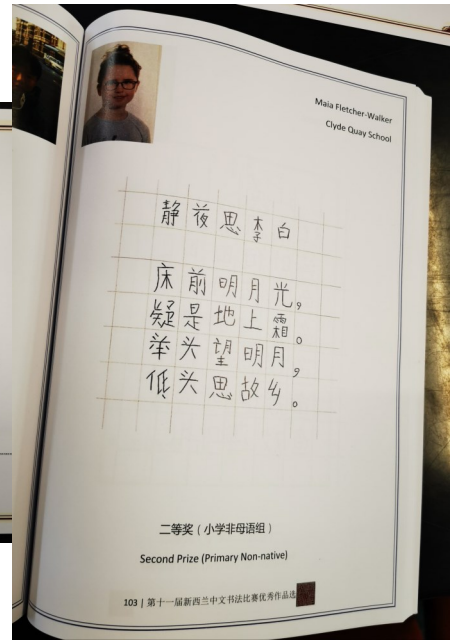 Maia Fletcher-Walker
Clyde Quay School
静夜思李白
床前明月光，
疑是地上霜。
举头望明月，
低头思故乡。
二等奖（小学非母语组）
Second Prize (Primary Non-native)
103 | 第十一届新西兰中文书法比赛优秀作品选